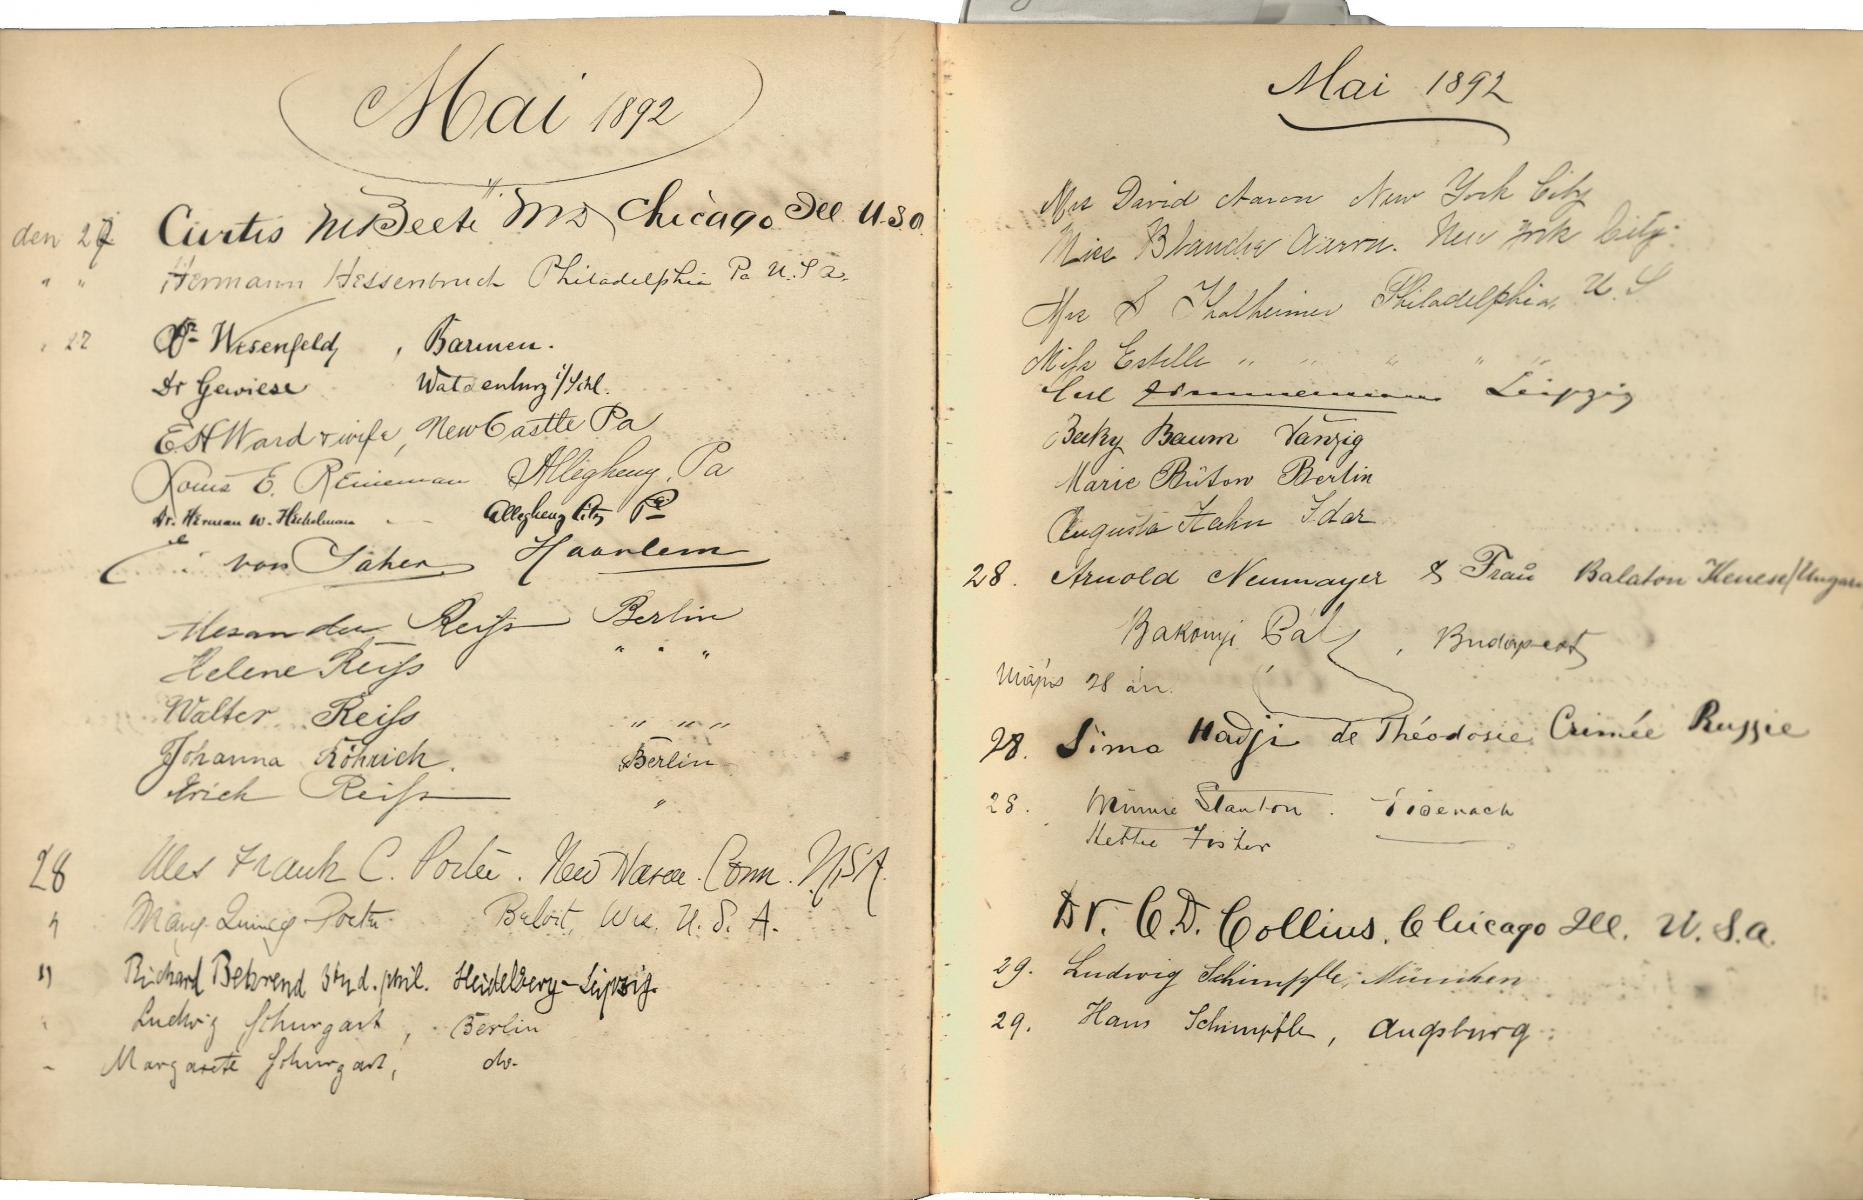 Mai 1892
den 27 Curtis McBeete MD Chicago Ill. U.S.a.
" " Hermann Hessenbruch Philadelphia Pa U.S.a.
" 27 Wesenfeld, Barmen.
Dr Gewiese Waldenburg i/Schl.
E H Ward & wife, New Castle Pa
Louis E. Reineman Allegheny, Pa
Dr. Herman W. Hechelman Allegheny City Pa
von Saher Haarlem
Alexander Reiſs Berlin
Helene Reiſs " " "
Walter Reiſs " " "
Johanna Röhrich. Berlin
Erich Reiſs "
28 Frank C. Porter. New Haven. Conn. U.S.A.
" Mary Quincy Porter Beloit, Wis. U. S. A.
" Richard Behrend Stud. phil. Heidelberg-Leipzig.
" Ludwig Schurgast, Berlin
" Margarete Schurgast, do.
Mai 1892
Mrs David Aaron New York City
Miss Blanche Aaron. New York City.
Mrs S Thalheimer Philadelphia, U. S
Miſs Estelle " " " " "
Carl Zimmermann Leipzig
Becky Baum Danzig
Marie Bütow Berlin
Augusta Hahn Idar
28. Arnold Neumayer & Frau Balaton Kenese/Ungarn
Bakonyi Pál, Budapest
Május 28 án.
28. Sima Hadji de Théodosie, Crimée Russie
28. Minnie Stanton. Eisenach
Hettie Foster
Dr. C. D. Collins. Chicago Ill. U. S. a.
29. Ludwig Schimpfle, München
29. Hans Schimpfle, Augsburg.